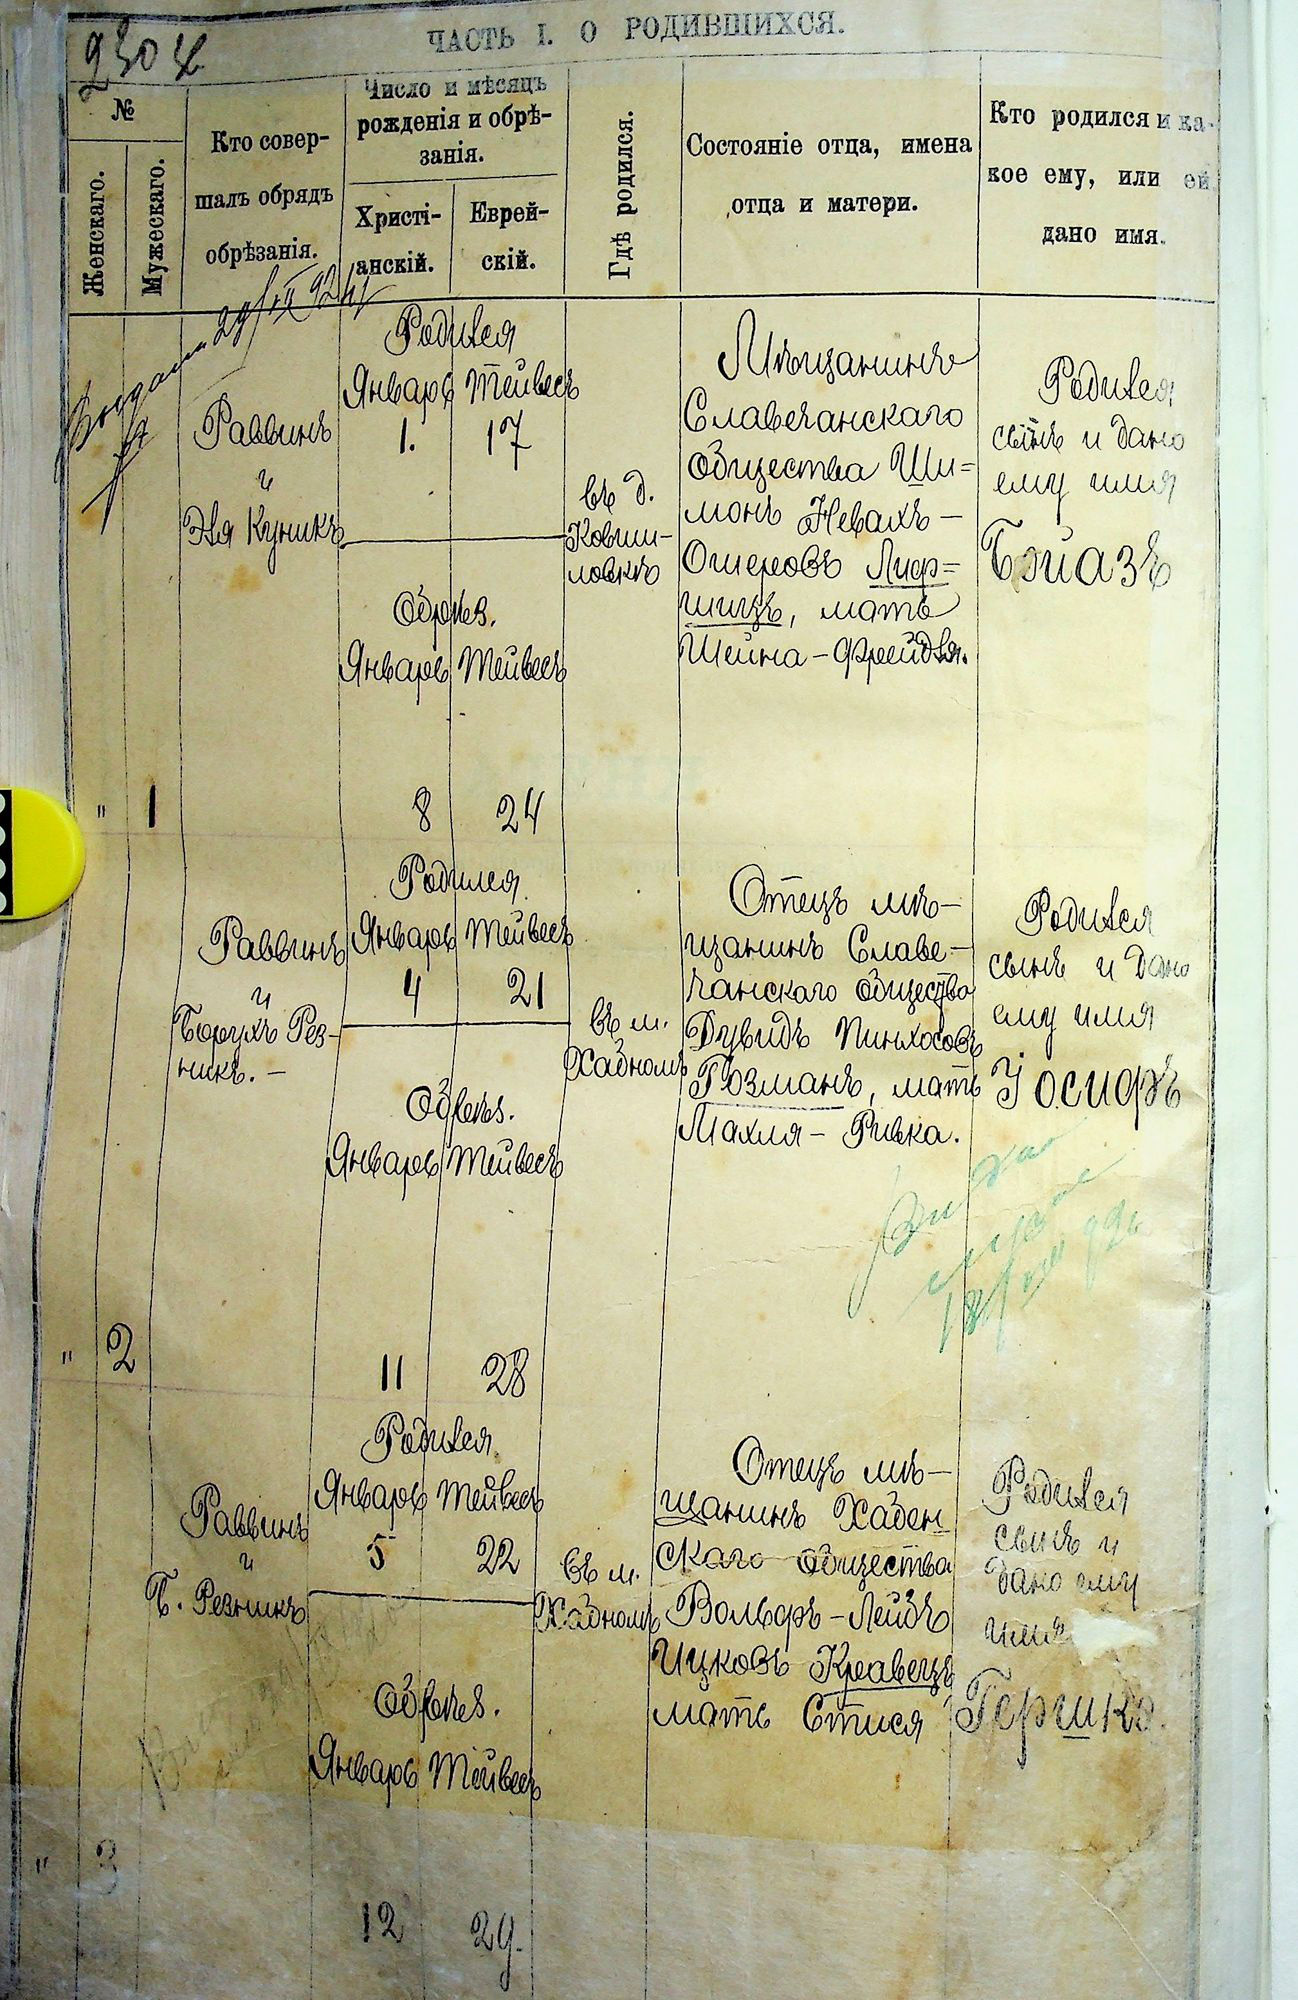 ЧАСТЬ I. О РОДИВШИХСЯ.
№
Женскаго.
Мужескаго.
Кто совер-
шалъ обрядъ
обрѣзанія.
Число и мѣсяцъ
рожденія и обрѣ-
занія.
Христі-
анскій.
Еврей-
скій.
Гдѣ родился.
Состояніе отца, имена
отца и матери.
Кто родился и ка-
кое ему, или ей
дано имя.
" 1
Раввинъ
и
Эля Куникъ
Родился
Январь Тейвесъ
1. 17
Обрѣз.
Январь Тейвесъ
8 24
въ д.
Ковши-
ловкѣ
Мѣщанинъ
Славечанскаго
общества Ши=
монъ Невахъ-
Ошеровъ Лиф=
шицъ, мать
Шейна-Фрейдля.
Родился
сынъ и дано
ему имя
Бэйазъ
" 2
Раввинъ
и
Борухъ Рез-
никъ. -
Родился
Январь Тейвесъ
4 21
Обрѣз.
Январь Тейвесъ
11 28
въ м.
Хабномъ
Отецъ мѣ-
щанинъ Славе-
чанскаго общества
Дувидъ Пинхосовъ
Гозманъ, мать
Махля-Ривка.
Родился
сынъ и дано
ему имя
Іосифъ
" 3
Раввинъ
и
Б. Резникъ
Родился
Январь Тейвесъ
5 22
Обрѣз.
Январь Тейвесъ
12 29.
въ м.
Хабномъ
Отецъ мѣ-
щанинъ Хабен
скаго общества
Вольфъ-Лейбъ
Ицковъ Кравецъ
мать Стися
Родился
сынъ и
дано ему
имя
Гершко.